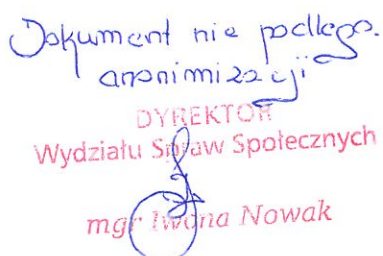 Dokument nie podlega
anonimizacji
DYREKTOR
Wydziału Spraw Społecznych
mgr Iwona Nowak